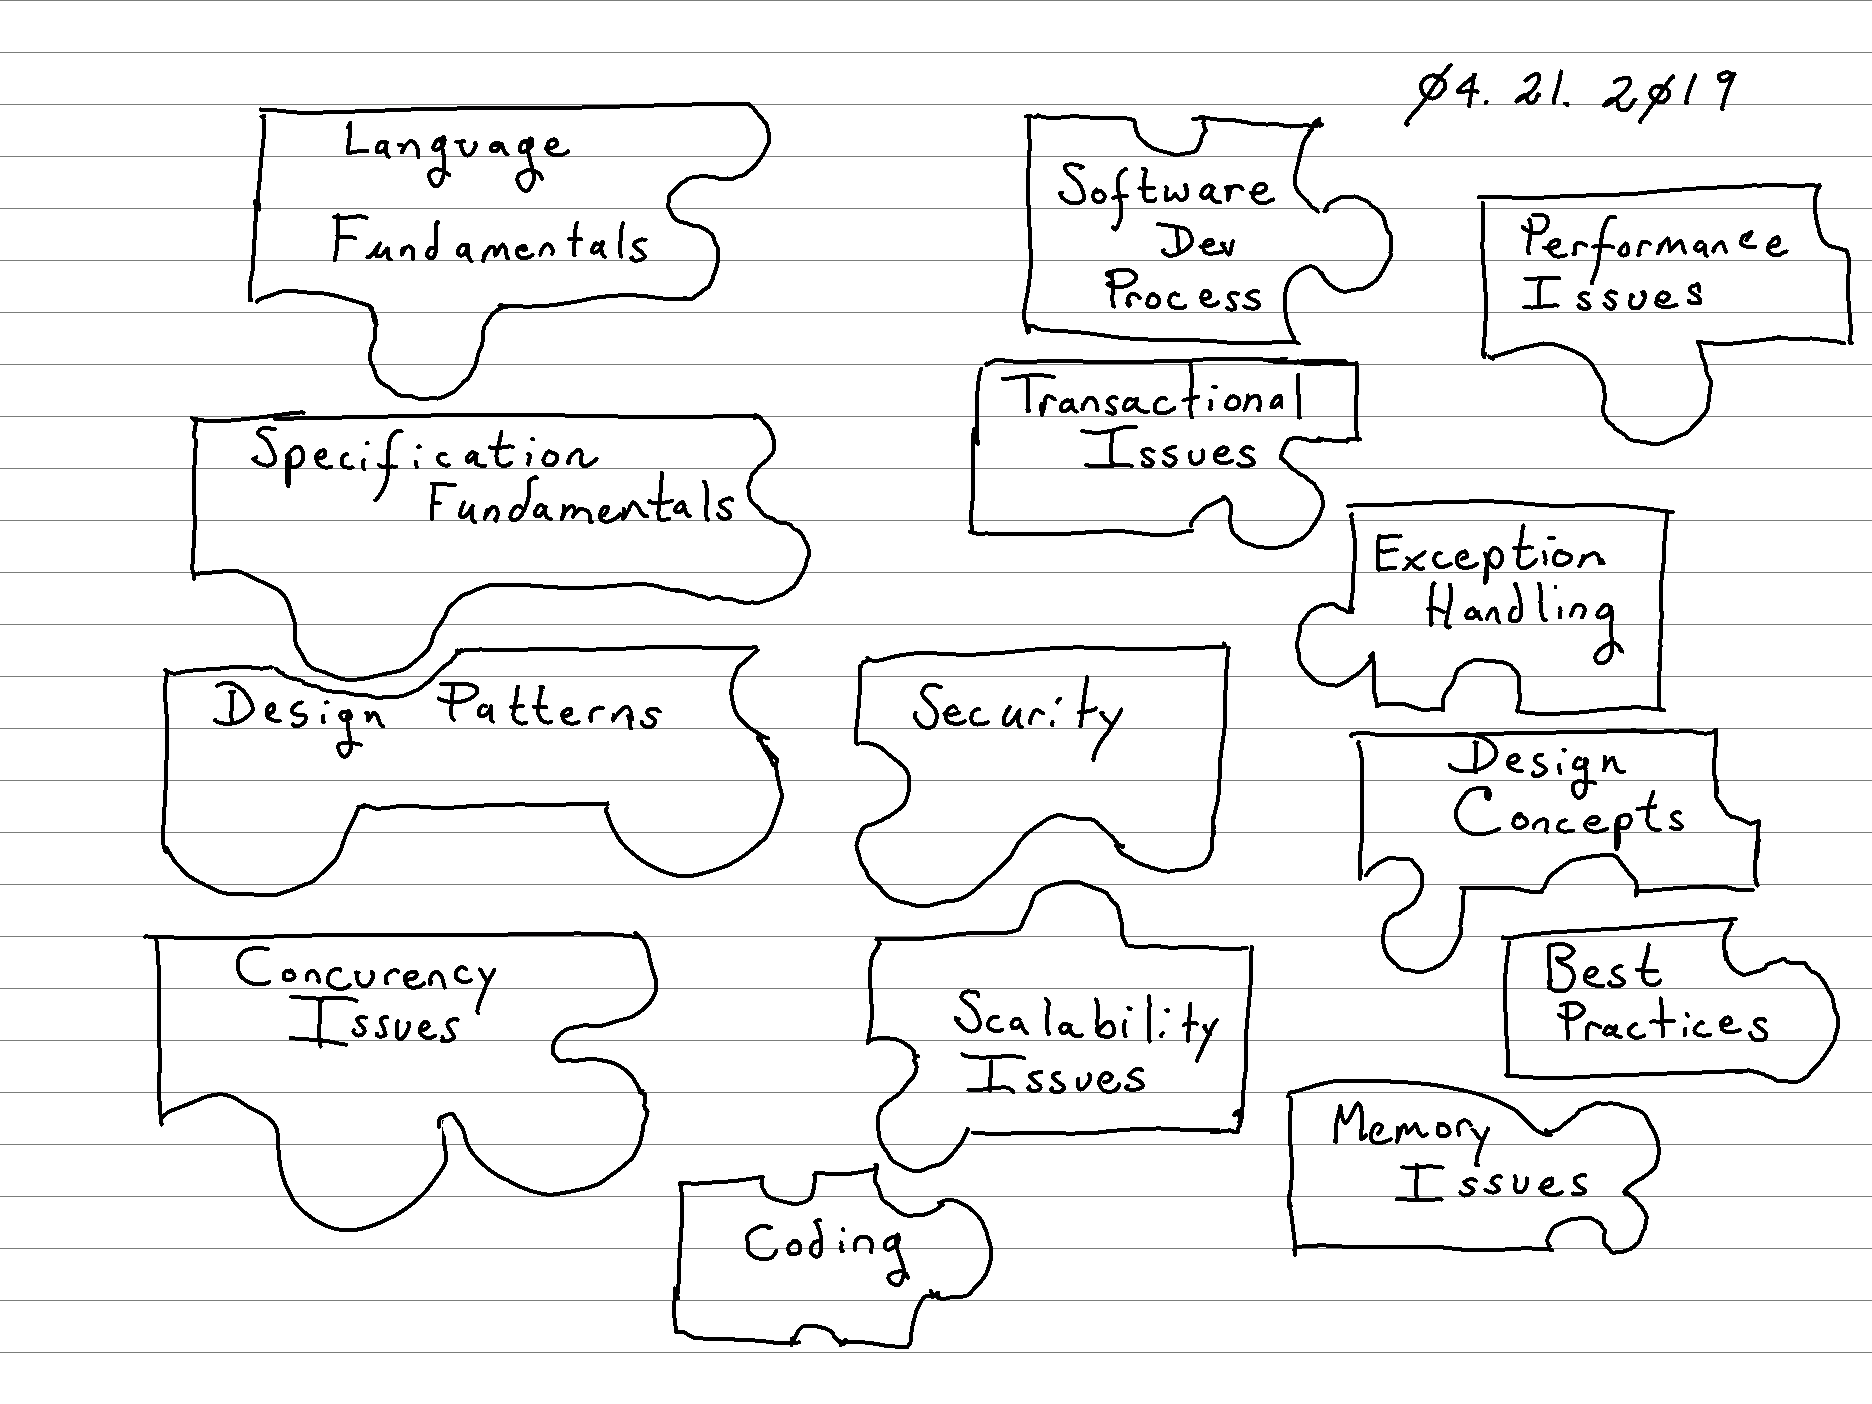 Ø4. 21. 2Ø19
Language
Fundamentals
Software
Dev
Process
Performance
Issues
Transactional
Issues
Specification
Fundamentals
Exception
Handling
Design Patterns
Security
Design
Concepts
Concurency
Issues
Scalability
Issues
Best
Practices
Memory
Issues
Coding